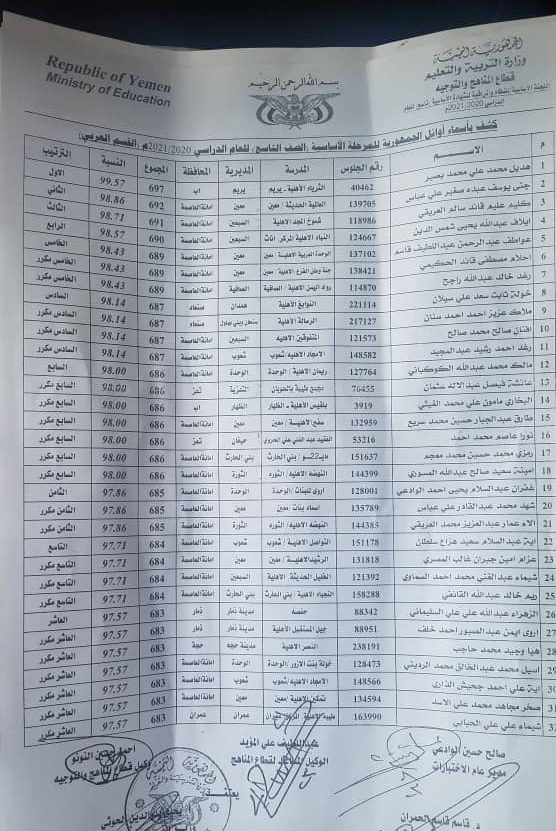 الجمهورية اليمنية
وزارة التربية والتعليم
قطاع المناهج والتوجيه
Republic of Yemen
Ministry of Education
بسم الله الرحمن الرحيم
كشف بأسماء أوائل الجمهورية للمرحلة الأساسية (الصف التاسع) للعام الدراسي 2021/2020م (القسم العربي)
م الاســم رقم الجلوس المدرسة المديرية المحافظة المجموع النسبة الترتيب
1 هديل محمد علي محمد 40462 يريم اب 697 99.57 الاول
2 جنى يوسف عبده صغير علي عباس 139705 العالمية الحديثة / معين معين امانة العاصمة 692 98.86 الثاني
3 كليم عليم قائد سالم العريقي 118986 شموع المجد الاهلية السبعين امانة العاصمة 691 98.71 الثالث
4 ايلاف عبدالله يحيى شمس الدين 124667 السبعين امانة العاصمة 690 98.57 الرابع
5 عواطف عبد الرحمن عبد اللطيف قاسم 137102 معين امانة العاصمة 689 98.43 الخامس
6 احلام مصطفى قائد الحكيمي 138421 معين امانة العاصمة 689 98.43 الخامس مكرر
7 رغد خالد عبدالله راجح 114870 رواد اليمن الاهلية / الصافية الصافية امانة العاصمة 689 98.43 الخامس مكرر
8 خولة ثابت سعد علي 221114 النوابغ الاهلية همدان صنعاء 687 98.14 السادس
9 ملاك عزيز احمد احمد سنان 217127 الرسالة الاهلية صنعاء 687 98.14 السادس مكرر
10 افنان صالح محمد صالح 121573 المتفوقين الاهليه السبعين امانة العاصمة 687 98.14 السادس مكرر
11 رغد احمد رشيد عبدالمجيد 148582 الامجاد الاهليه/شعوب شعوب امانة العاصمة 687 98.14 السادس مكرر
12 مالك محمد عبدالله الكوكباني 127764 ريمان الاهلية / الوحدة الوحدة امانة العاصمة 686 98.00 السابع
13 عائشة فيصل عبد الاله عثمان 76455 التعزية تعز 686 98.00 السابع مكرر
14 البخاري مامون علي محمد 3919 بلقيس الاهلية - الظهار الظهار اب 686 98.00 السابع مكرر
15 طارق عبد الجبار حسين محمد سريع 132959 معين امانة العاصمة 686 98.00 السابع مكرر
16 نورا عاصم محمد احمد 53216 حيفان تعز 686 98.00 السابع مكرر
17 رمزي محمد حسين محمد معجم 151637 22مايو/ بني الحارث بني الحارث امانة العاصمة 686 98.00 السابع مكرر
18 امينة سعيد صالح عبدالله المسوري 144399 النهضه الاهليه / الثوره الثورة امانة العاصمة 686 98.00 السابع مكرر
19 غفران عبدالسلام يحيى احمد الوادعي 128001 اروى للبنات / الوحدة الوحدة امانة العاصمة 685 97.86 الثامن
20 شهد محمد عبد القادر علي عباس 135789 اسماء بنات / معين معين امانة العاصمة 685 97.86 الثامن مكرر
21 الاء عمار عبد العزيز محمد العريقي 144385 النهضه الاهليه / الثوره الثورة امانة العاصمة 685 97.86 الثامن مكرر
22 اية عبد السلام سعيد هزاع سلطان 151178 التواصل الاهلية / شعوب شعوب امانة العاصمة 684 97.71 التاسع
23 عزام امين جبران غالب المصري 131818 معين امانة العاصمة 684 97.71 التاسع مكرر
24 شيماء عبد الغني محمد احمد السماوي 121392 الخليل الحديثة الاهلية السبعين امانة العاصمة 684 97.71 التاسع مكرر
25 ريم خالد عبدالله 158288 بني الحارث امانة العاصمة 684 97.71 التاسع مكرر
26 الزهراء عبد الله علي علي السليماني 88342 حفصه مدينة ذمار ذمار 683 97.57 العاشر
27 اروى ايمن عبد الصبور احمد خلف 88951 جيل المستقبل الأهلية مدينة ذمار ذمار 683 97.57 العاشر مكرر
28 هيا وحيد محمد حاجب 238191 النصر الاهلية مدينة حجه حجة 683 97.57 العاشر مكرر
29 اسيل محمد عبد الخالق محمد الرديني 128473 خولة بنت الازور / الوحدة الوحدة امانة العاصمة 683 97.57 العاشر مكرر
30 اية علي احمد جحيش 148566 الامجاد الاهليه/شعوب شعوب امانة العاصمة 683 97.57 العاشر مكرر
31 صخر مجاهد محمد علي الاسد 134594 معين امانة العاصمة 683 97.57 العاشر مكرر
شيماء علي علي 163990 عمران عمران 683 97.57 العاشر مكرر
صالح حسين الوادعي
مدير عام الاختبارات
عبداللطيف علي المؤيد
الوكيل لقطاع المناهج
احمد حسين النونو
وكيل قطاع المناهج والتوجيه
د. قاسم قاسم الحمران
يعتمد
الدين الحوثي